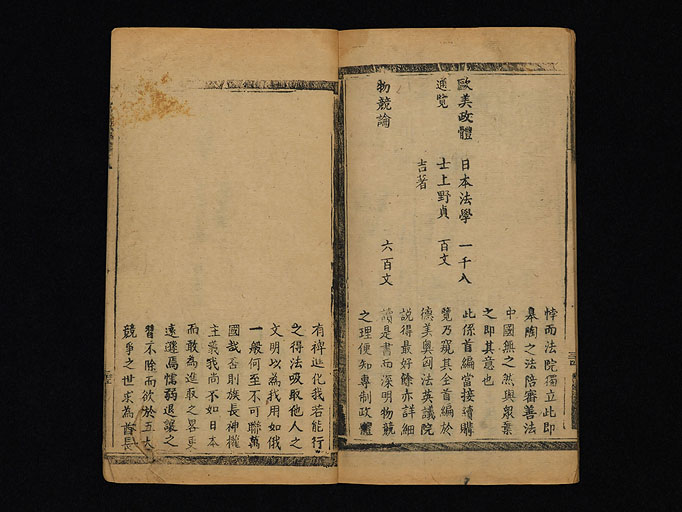 悖而法院獨立此即
皋陶之法陪審善法
中國無之然與
之即其意也
歐美政體 日本法學 一千八
此係首編當接續購
通覽 士上野貞 百文
覽乃窺其全首編於
吉著
德美奧匈法英議院
說得最好餘亦詳細
物競論 六百文
讀是書而深明物競
之理便知專制政體
有裨進化我若能行
之得法吸取他人之
文明以為我用如俄
一般何至不可聯萬
國哉否則族長神權
主義我尚不如日本
而敢為進取之畧更
遠遜焉懦弱退讓之
習不除而欲於五大
競爭之世求為酋長